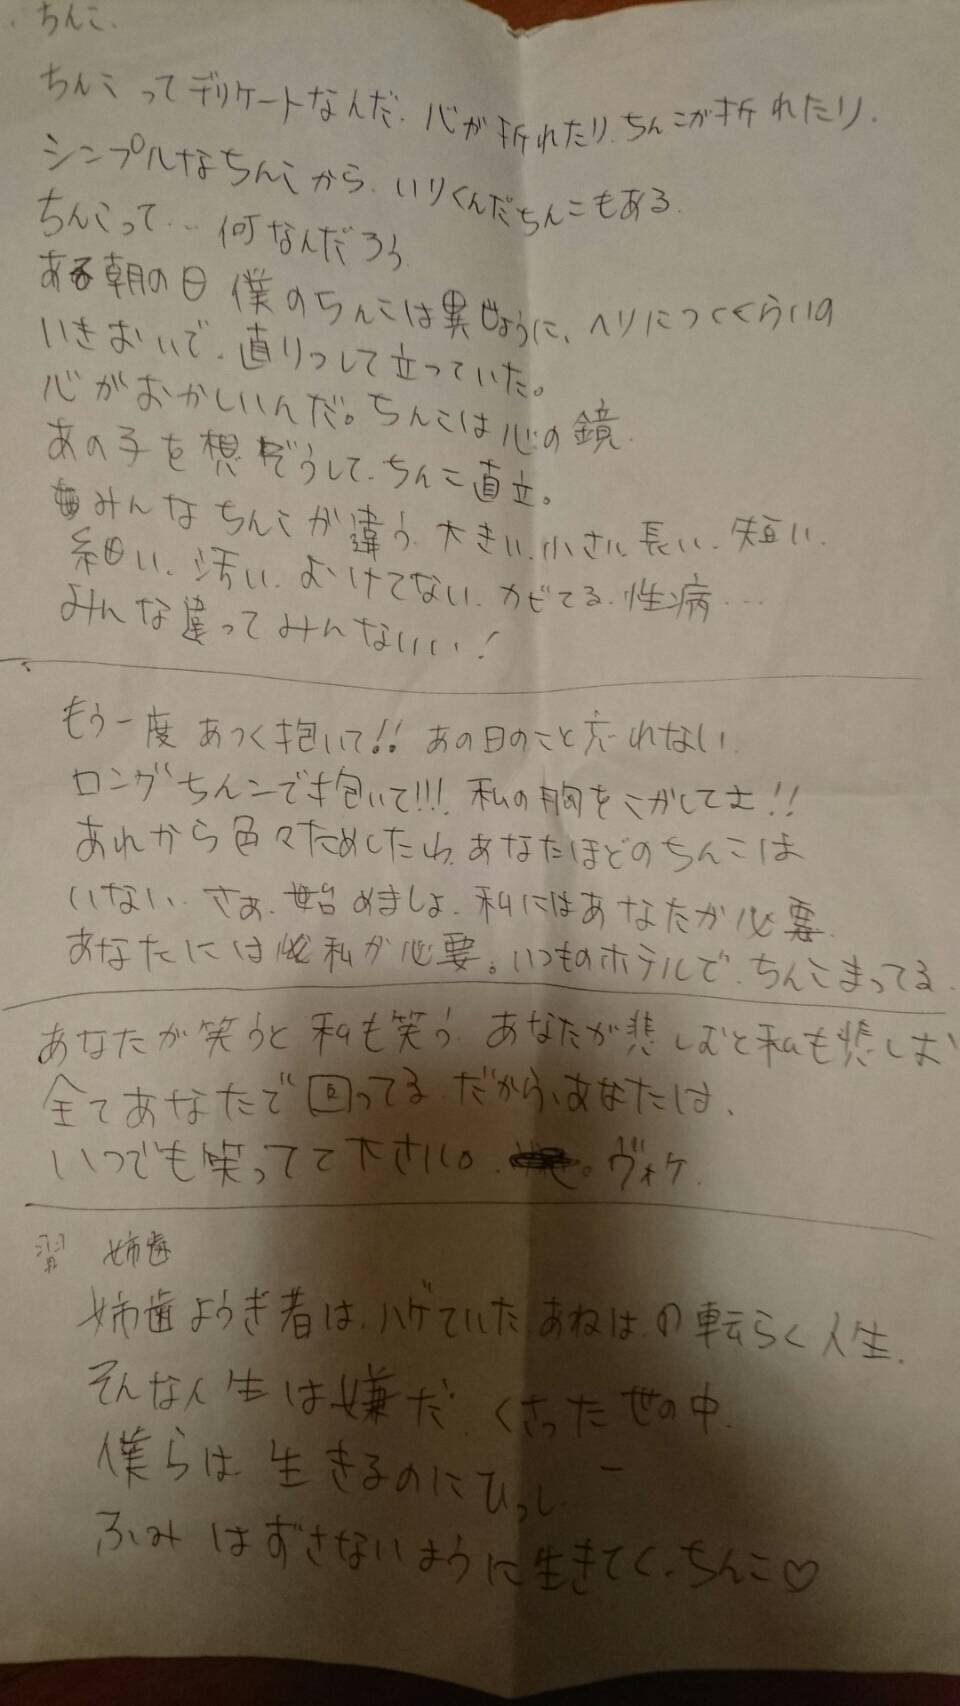 ちんこ.
ちんこってデリケートなんだ.心が折れたり.ちんこが折れたり.
シンプルなちんこから.いりくんだちんこもある.
ちんこって…何なんだろう.
ある朝の日 僕のちんこは異じょうに、ヘリにつくくらいの
いきおいで.直りつして立っていた。
心がおかしいんだ。ちんこは心の鏡.
あの子を想ぞうして.ちんこ直立。
みんなちんこが違う.大きい.小さい.長い.短い.
細い.汚い.よけてない.カビてる.性病…
みんな違ってみんないい!
もう一度 あつく抱いて!! あの日のこと忘れない.
ロングちんこで抱いて!!! 私の胸をこがして!!
あれから色々ためしたわ.あなたほどのちんこは
いない.さぁ.始めましょ.私にはあなたが必要.
あなたには私が必要。いつものホテルで.ちんこまってる.
あなたが笑うと私も笑う.あなたが悲しむと私も悲しむ
全てあなたで回ってる.だから、あなたは、
いつでも笑ってて下さい。.。ヴォケ.
姉歯
姉歯ようぎ者は.ハゲていた.あねは.の転らく人生.
そんな人生は嫌だ.くさった世の中.
僕らは.生きるのにひっし.
ふみはずさないように生きてく.ちんこ♡